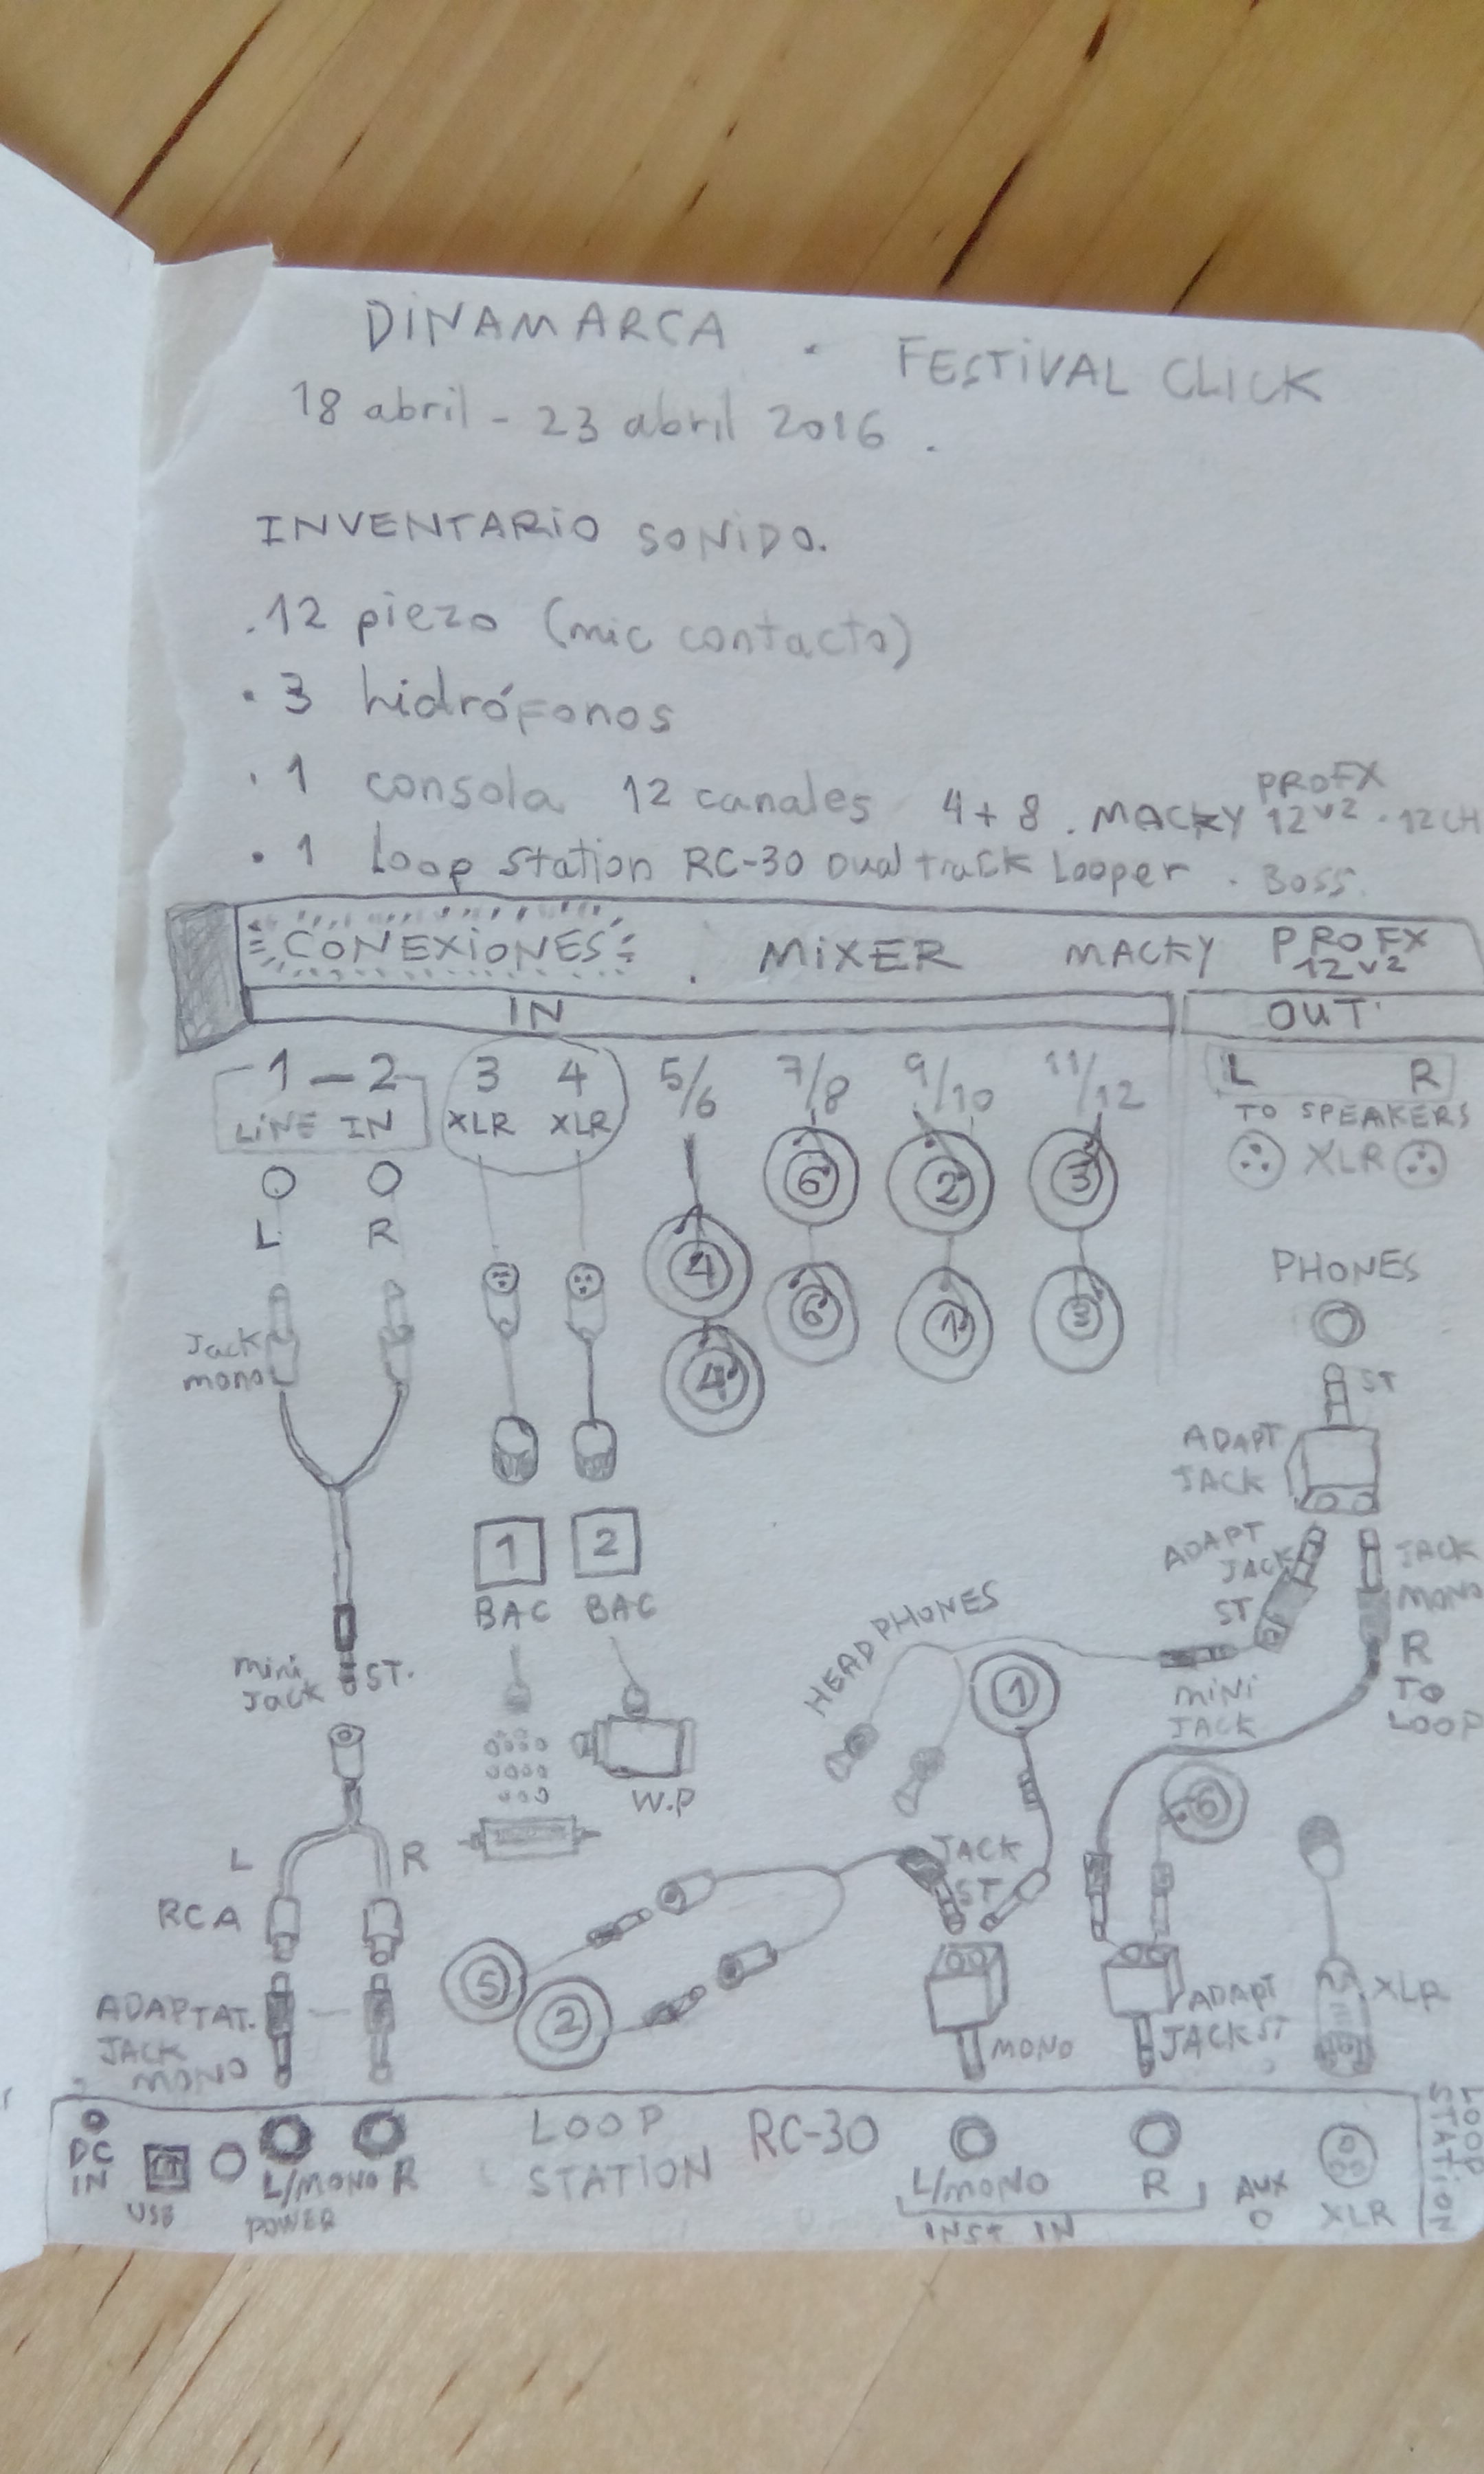 DINAMARCA . FESTIVAL CLICK
18 abril - 23 abril 2016 .
INVENTARIO SONIDO.
. 12 piezo (mic contacto)
• 3 hidrófonos
. 1 consola 12 canales 4+8 . MACKY PROFX 12v2 . 12CH
• 1 Loop Station RC-30 Dual track Looper . Boss.
CONEXIONES . MIXER MACKY PROFX 12v2
IN OUT
1 - 2 3 4 5/6 7/8 9/10 11/12 L R
LINE IN XLR XLR TO SPEAKERS
XLR
L R
6 2 3
4 6 1 3
4
PHONES
Jack mono
ST
ADAPT JACK
1 2
BAC BAC
ADAPT JACK ST
JACK MONO
R TO LOOP
mini Jack ST.
HEADPHONES
1
MINI JACK
W.P
6
L R
RCA
JACK ST
5
2
ADAPTAT. JACK MONO
MONO
ADAPT JACK ST
XLR
DC IN
USB
POWER
L/MONO R
LOOP STATION RC-30
L/MONO R
INST IN
AUX
XLR
LOOP STATION